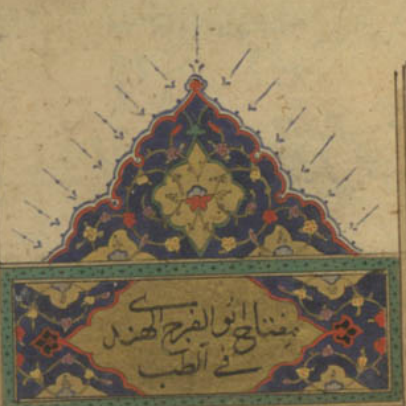 مفتاح ابو الفرج الهندى
في الطب